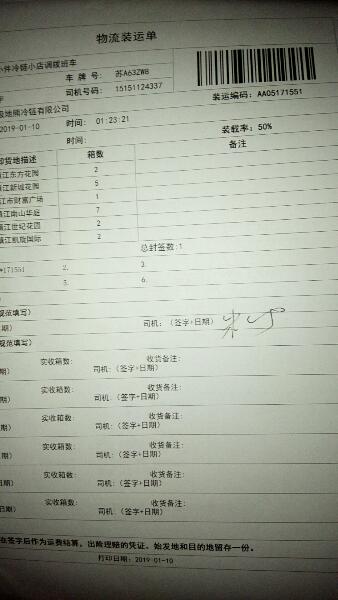 物流装运单
小件冷链小店调拨班车
车 牌 号: 苏A63ZW8
司机号码: 15151124337
装运编码: AA05171551
极地熊冷链有限公司
2019-01-10 时间: 01:23:21
时间:
装载率: 50%
卸货地描述 箱数 备注
镇江东方花园 2
镇江新城花园 5
镇江市财富广场 1
镇江南山华庭 7
镇江世纪花园 2
镇江凯旋国际 2
总封签数:1
*171551 2. 3.
5. 6.
规范填写)
日期) 司机:(签字+日期)
规范填写)
实收箱数: 收货备注:
期) 司机:(签字+日期)
实收箱数: 收货备注:
期) 司机:(签字+日期)
实收箱数: 收货备注:
期) 司机:(签字+日期)
实收箱数: 收货备注:
期) 司机:(签字+日期)
实收箱数: 收货备注:
日期) 司机:(签字+日期)
实收箱数: 收货备注:
日期) 司机:(签字+日期)
在签字后作为运费结算，出险理赔的凭证、始发地和目的地留存一份。
打印日期:2019-01-10